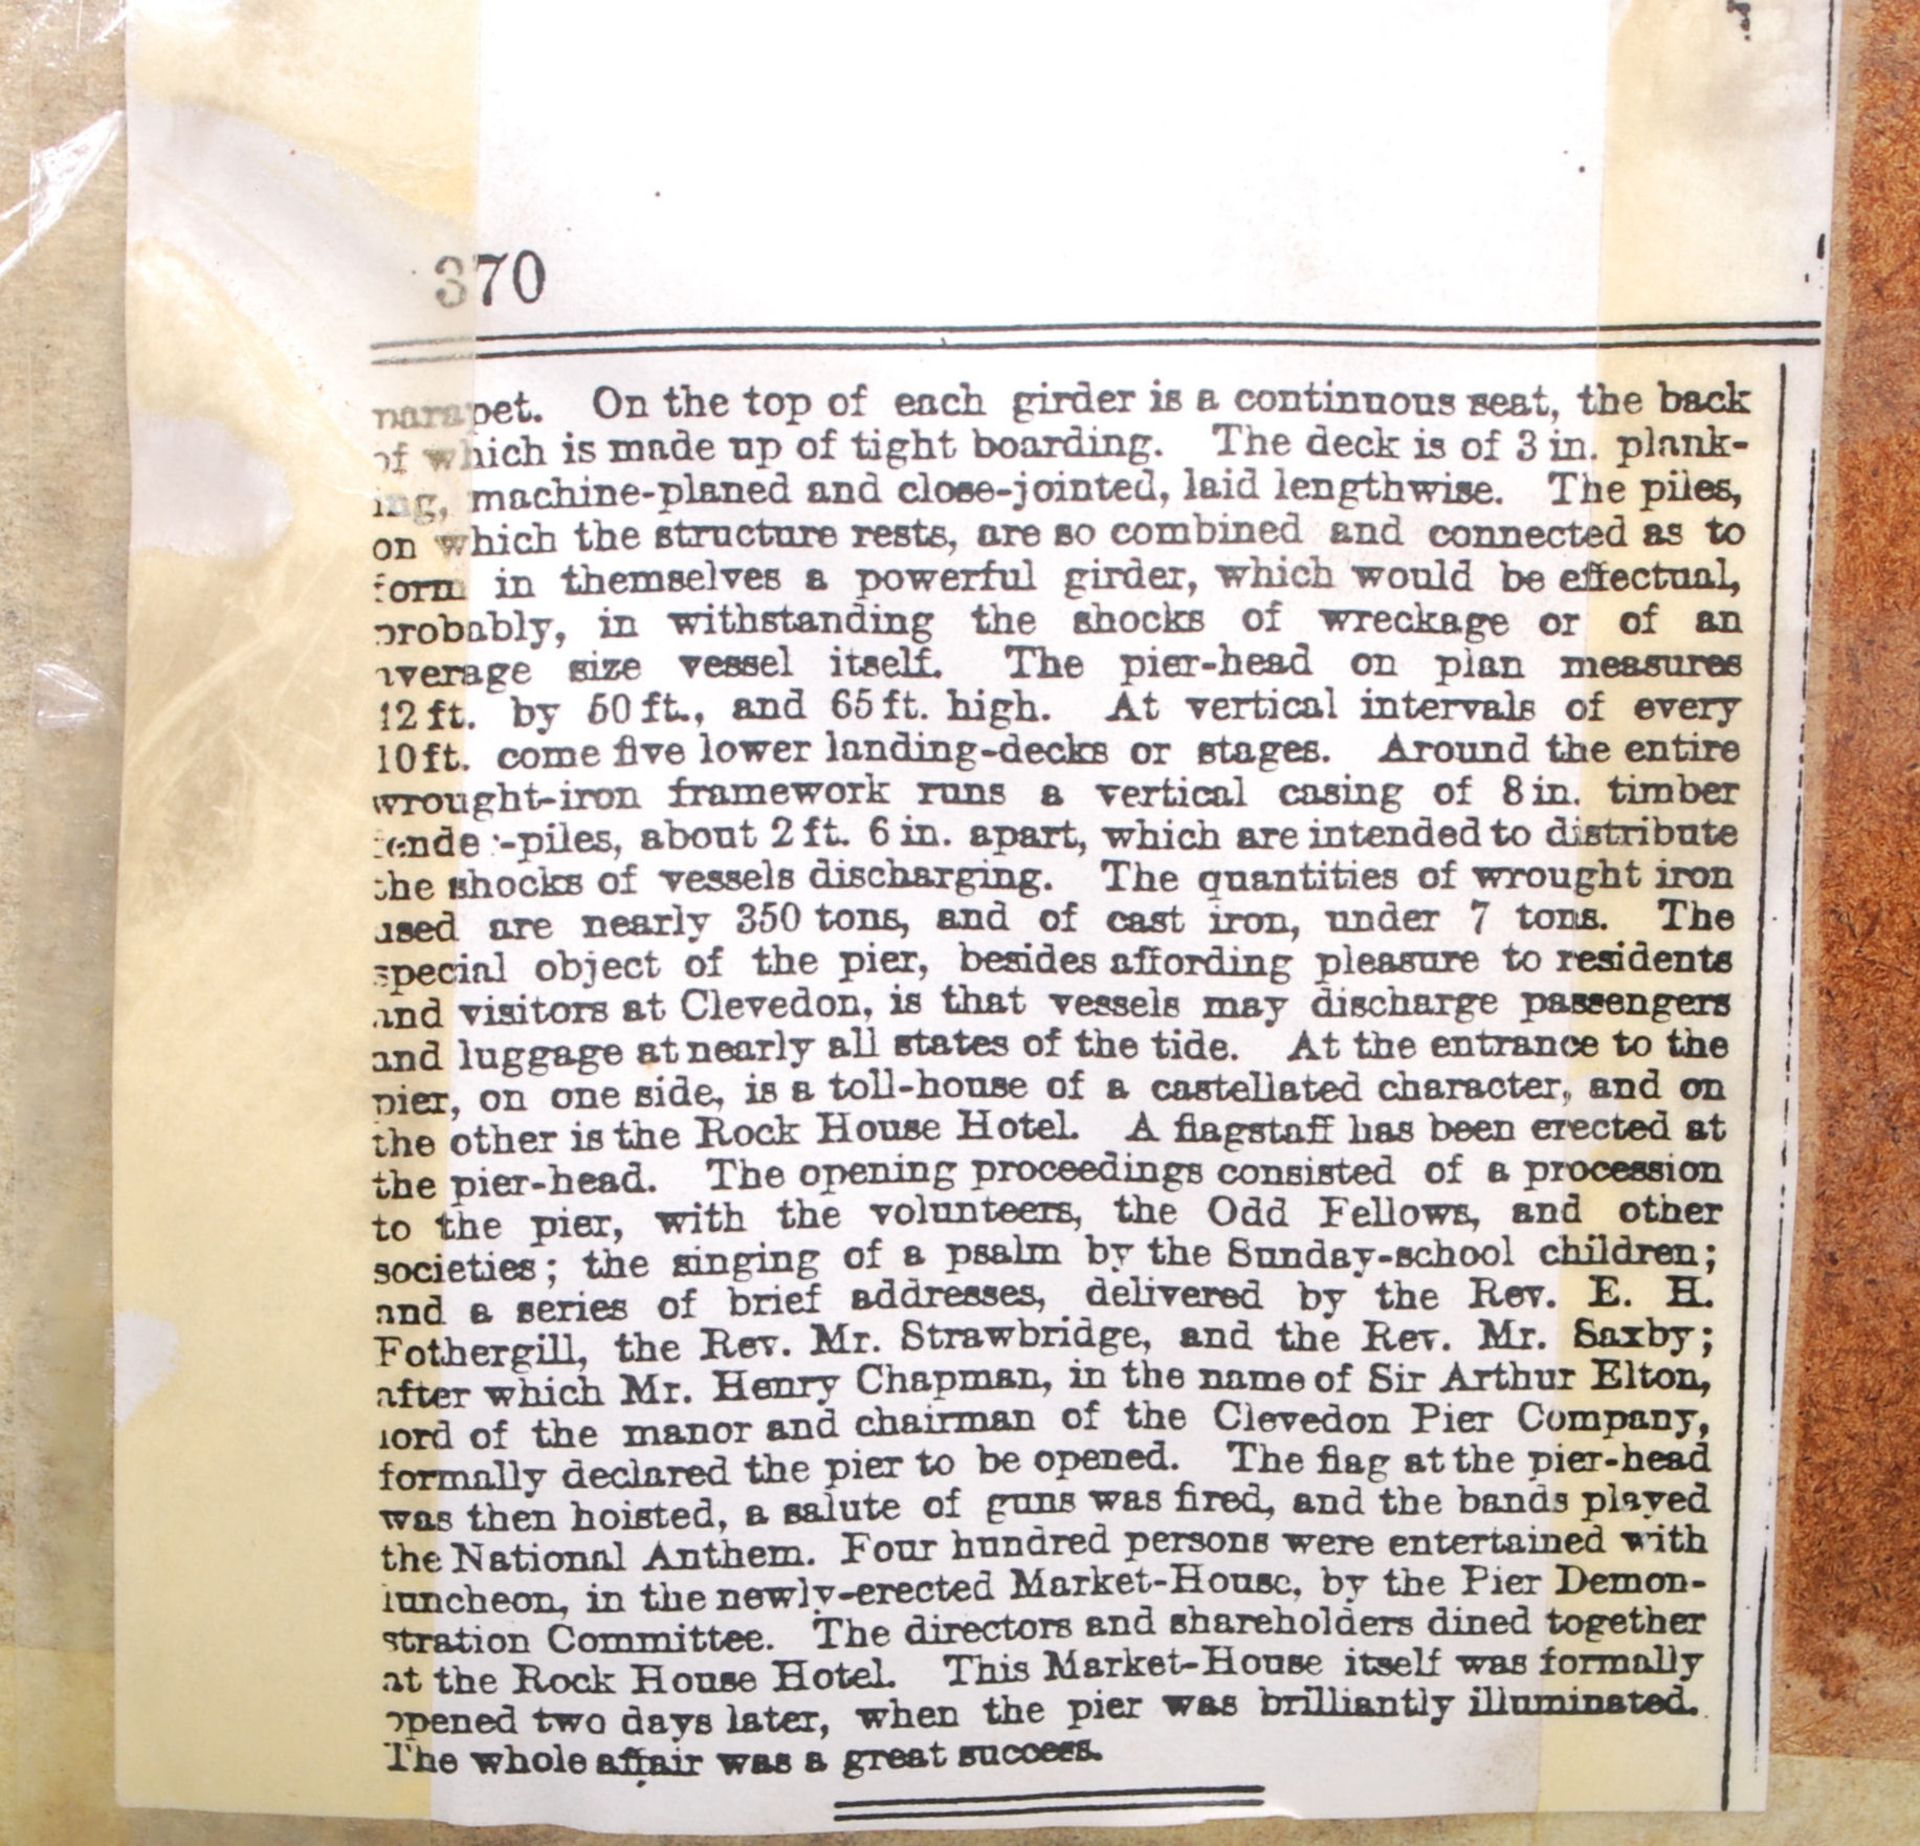 370
parapet. On the top of each girder is a continuous seat, the back
of which is made up of tight boarding. The deck is of 3 in. plank-
ing, machine-planed and close-jointed, laid lengthwise. The piles,
on which the structure rests, are so combined and connected as to
form in themselves a powerful girder, which would be effectual,
probably, in withstanding the shocks of wreckage or of an
average size vessel itself. The pier-head on plan measures
42 ft. by 50 ft., and 65 ft. high. At vertical intervals of every
10 ft. come five lower landing-decks or stages. Around the entire
wrought-iron framework runs a vertical casing of 8 in. timber
fender-piles, about 2 ft. 6 in. apart, which are intended to distribute
the shocks of vessels discharging. The quantities of wrought iron
used are nearly 350 tons, and of cast iron, under 7 tons. The
special object of the pier, besides affording pleasure to residents
and visitors at Clevedon, is that vessels may discharge passengers
and luggage at nearly all states of the tide. At the entrance to the
pier, on one side, is a toll-house of a castellated character, and on
the other is the Rock House Hotel. A flagstaff has been erected at
the pier-head. The opening proceedings consisted of a procession
to the pier, with the volunteers, the Odd Fellows, and other
societies; the singing of a psalm by the Sunday-school children;
and a series of brief addresses, delivered by the Rev. E. H.
Fothergill, the Rev. Mr. Strawbridge, and the Rev. Mr. Saxby;
after which Mr. Henry Chapman, in the name of Sir Arthur Elton,
lord of the manor and chairman of the Clevedon Pier Company,
formally declared the pier to be opened. The flag at the pier-head
was then hoisted, a salute of guns was fired, and the bands played
the National Anthem. Four hundred persons were entertained with
luncheon, in the newly-erected Market-House, by the Pier Demon-
stration Committee. The directors and shareholders dined together
at the Rock House Hotel. This Market-House itself was formally
opened two days later, when the pier was brilliantly illuminated.
The whole affair was a great success.